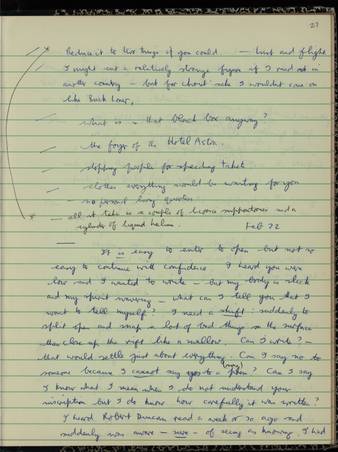 27
Reduce it to two things if you could — lust and flight
I might cut a relatively strong figure if I in
another country — but for Christ sake I wouldn't on
like
what is in that black box anyway?
the foyer of the Hotel Astor.
stopping people for speeding tickets
clothes everything would be waiting for you
no personal living quarters
all it takes is a couple of suppositories and a
cylinder of liquid helium. Feb 22
It is easy to enter to open but not so
easy to continue with confidence I heard you were
low and I wanted to write — but my body is slack
and my spirit wavering — what can I tell you that I
want to tell myself? I need a shift: suddenly to
split open and snap a lot of bad things to the surface
then close up the rift like a mallow. Can I write? —
that would settle just about everything. Can I say no to
someone because I cannot say yes to a Can I say
I know what I mean when I do not understand your
inscription but I do know how carefully it was written?
I heard Robert Duncan read a week or so ago and
suddenly was aware — — of seeing as knowing. I had